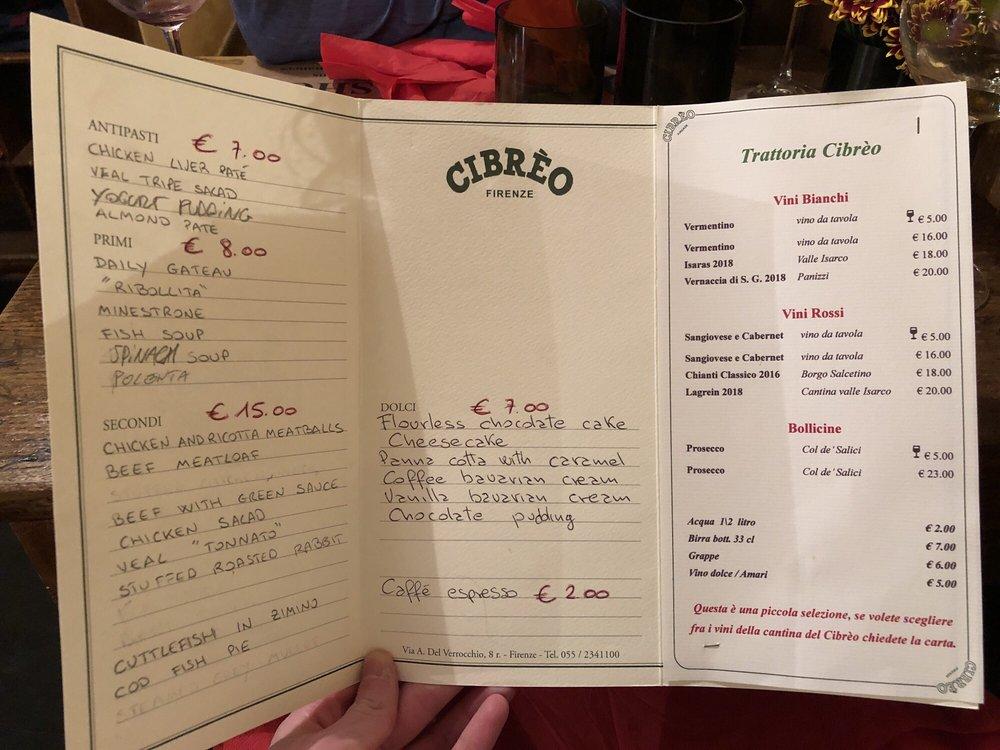 ANTIPASTI € 7.00
CHICKEN LIVER PATÉ
VEAL TRIPE SALAD
YOGURT PUDDING
ALMOND PATE
PRIMI € 8.00
DAILY GATEAU
"RIBOLLITA"
MINESTRONE
FISH SOUP
SPINACH SOUP
POLENTA
SECONDI € 15.00
CHICKEN AND RICOTTA MEATBALLS
BEEF MEATLOAF
BEEF WITH GREEN SAUCE
CHICKEN SALAD
VEAL "TONNATO"
STUFFED ROASTED RABBIT
CUTTLEFISH IN ZIMINO
COD FISH PIE
CIBRÈO
FIRENZE
DOLCI € 7.00
Flourless chocolate cake
Cheesecake
Panna cotta with caramel
Coffee bavarian cream
Vanilla bavarian cream
Chocolate pudding
Caffé espresso € 2.00
Via A. Del Verrocchio, 8 r. - Firenze - Tel. 055 / 2341100
CIBRÈO
Trattoria Cibrèo
Vini Bianchi
Vermentino vino da tavola € 5.00
Vermentino vino da tavola € 16.00
Isaras 2018 Valle Isarco € 18.00
Vernaccia di S. G. 2018 Panizzi € 20.00
Vini Rossi
Sangiovese e Cabernet vino da tavola € 5.00
Sangiovese e Cabernet vino da tavola € 16.00
Chianti Classico 2016 Borgo Salcetino € 18.00
Lagrein 2018 Cantina valle Isarco € 20.00
Bollicine
Prosecco Col de' Salici € 5.00
Prosecco Col de' Salici € 23.00
Acqua 1\2 litro € 2.00
Birra bott. 33 cl € 7.00
Grappe € 6.00
Vino dolce / Amari € 5.00
Questa è una piccola selezione, se volete scegliere
fra i vini della cantina del Cibrèo chiedete la carta.
CIBRÈO